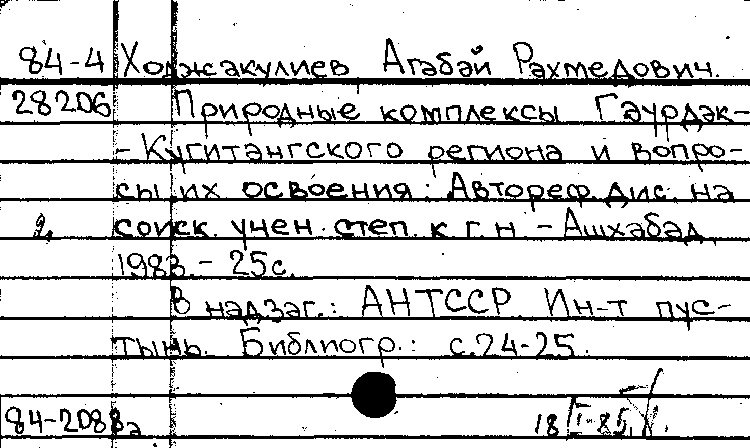 84-4 Ходжакулиев, Агабай Рахмедович.
28206 Природные комплексы Гаурдак-
-Кугитангского региона и вопро-
сы их освоения: Автореф. дис. на
2. соиск. учен. степ. к.г.н. - Ашхабад,
1983. - 25с.
В надзаг.: АНТССР. Ин-т пус-
тынь. Библиогр.: с.24-25.
84-2088а 18/I-85.